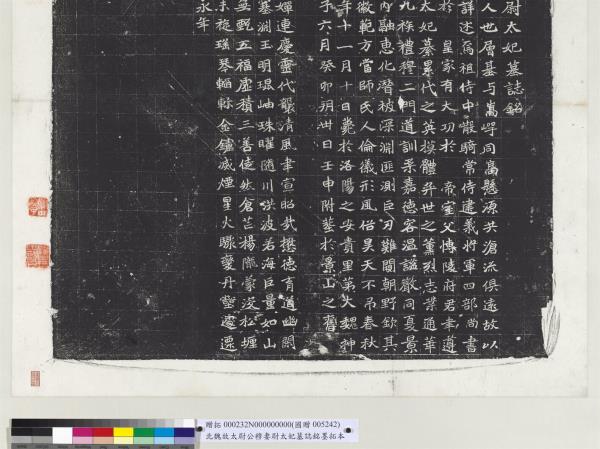 尉太妃墓誌銘
人也層基与嵩崿同高懸源共滄流俱遠故以
詳述焉祖侍中散騎常侍建義將軍四部尚書
於 皇家有大功於 帝室父博陵府君聿遵
太妃纂累代之英模體弈世之薰烈志業通華
九族禮穆二門道訓柔嘉德容溫謐嚴同夏景
內融惠化潛被深淵匪測巨刃難閒朝野欽其
徽範方當師氏人倫儀形風俗昊天不吊春秋
年十一月十日薨於洛陽之安貴里第大魏神
子六月癸卯朔卅日壬申附塟於景山之舊
嬋連慶靈代襲清風聿宣昭哉懋德有道幽閑
墓淵玉明琨岫珠曜隨川洪波若海巨量如山
甄五福虛積三善徒然倉芒楊隴蒙沒松堙
瑤琴輟軫金鑪滅煙星火驟變丹壑遽遷
永年
贈拓 000232N000000000(國贈 005242)
北魏故太尉公穆妻尉太妃墓誌銘墨拓本